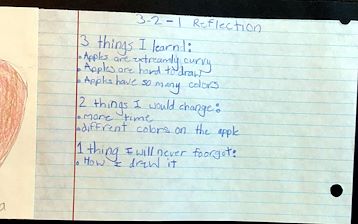 3-2-1 Reflection
3 things I learnd:
• Apples are extreamly curvy
• Apples are hard to draw
• Apples have so many colors
2 things I would change:
• more time
• diffrent colors on the apple
1 thing I will never foorgot:
• How I draw it